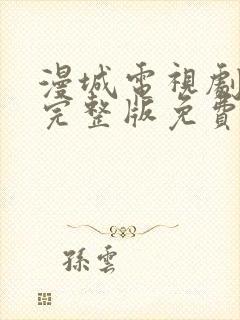 漫城電視劇
完整版免費
孫雲